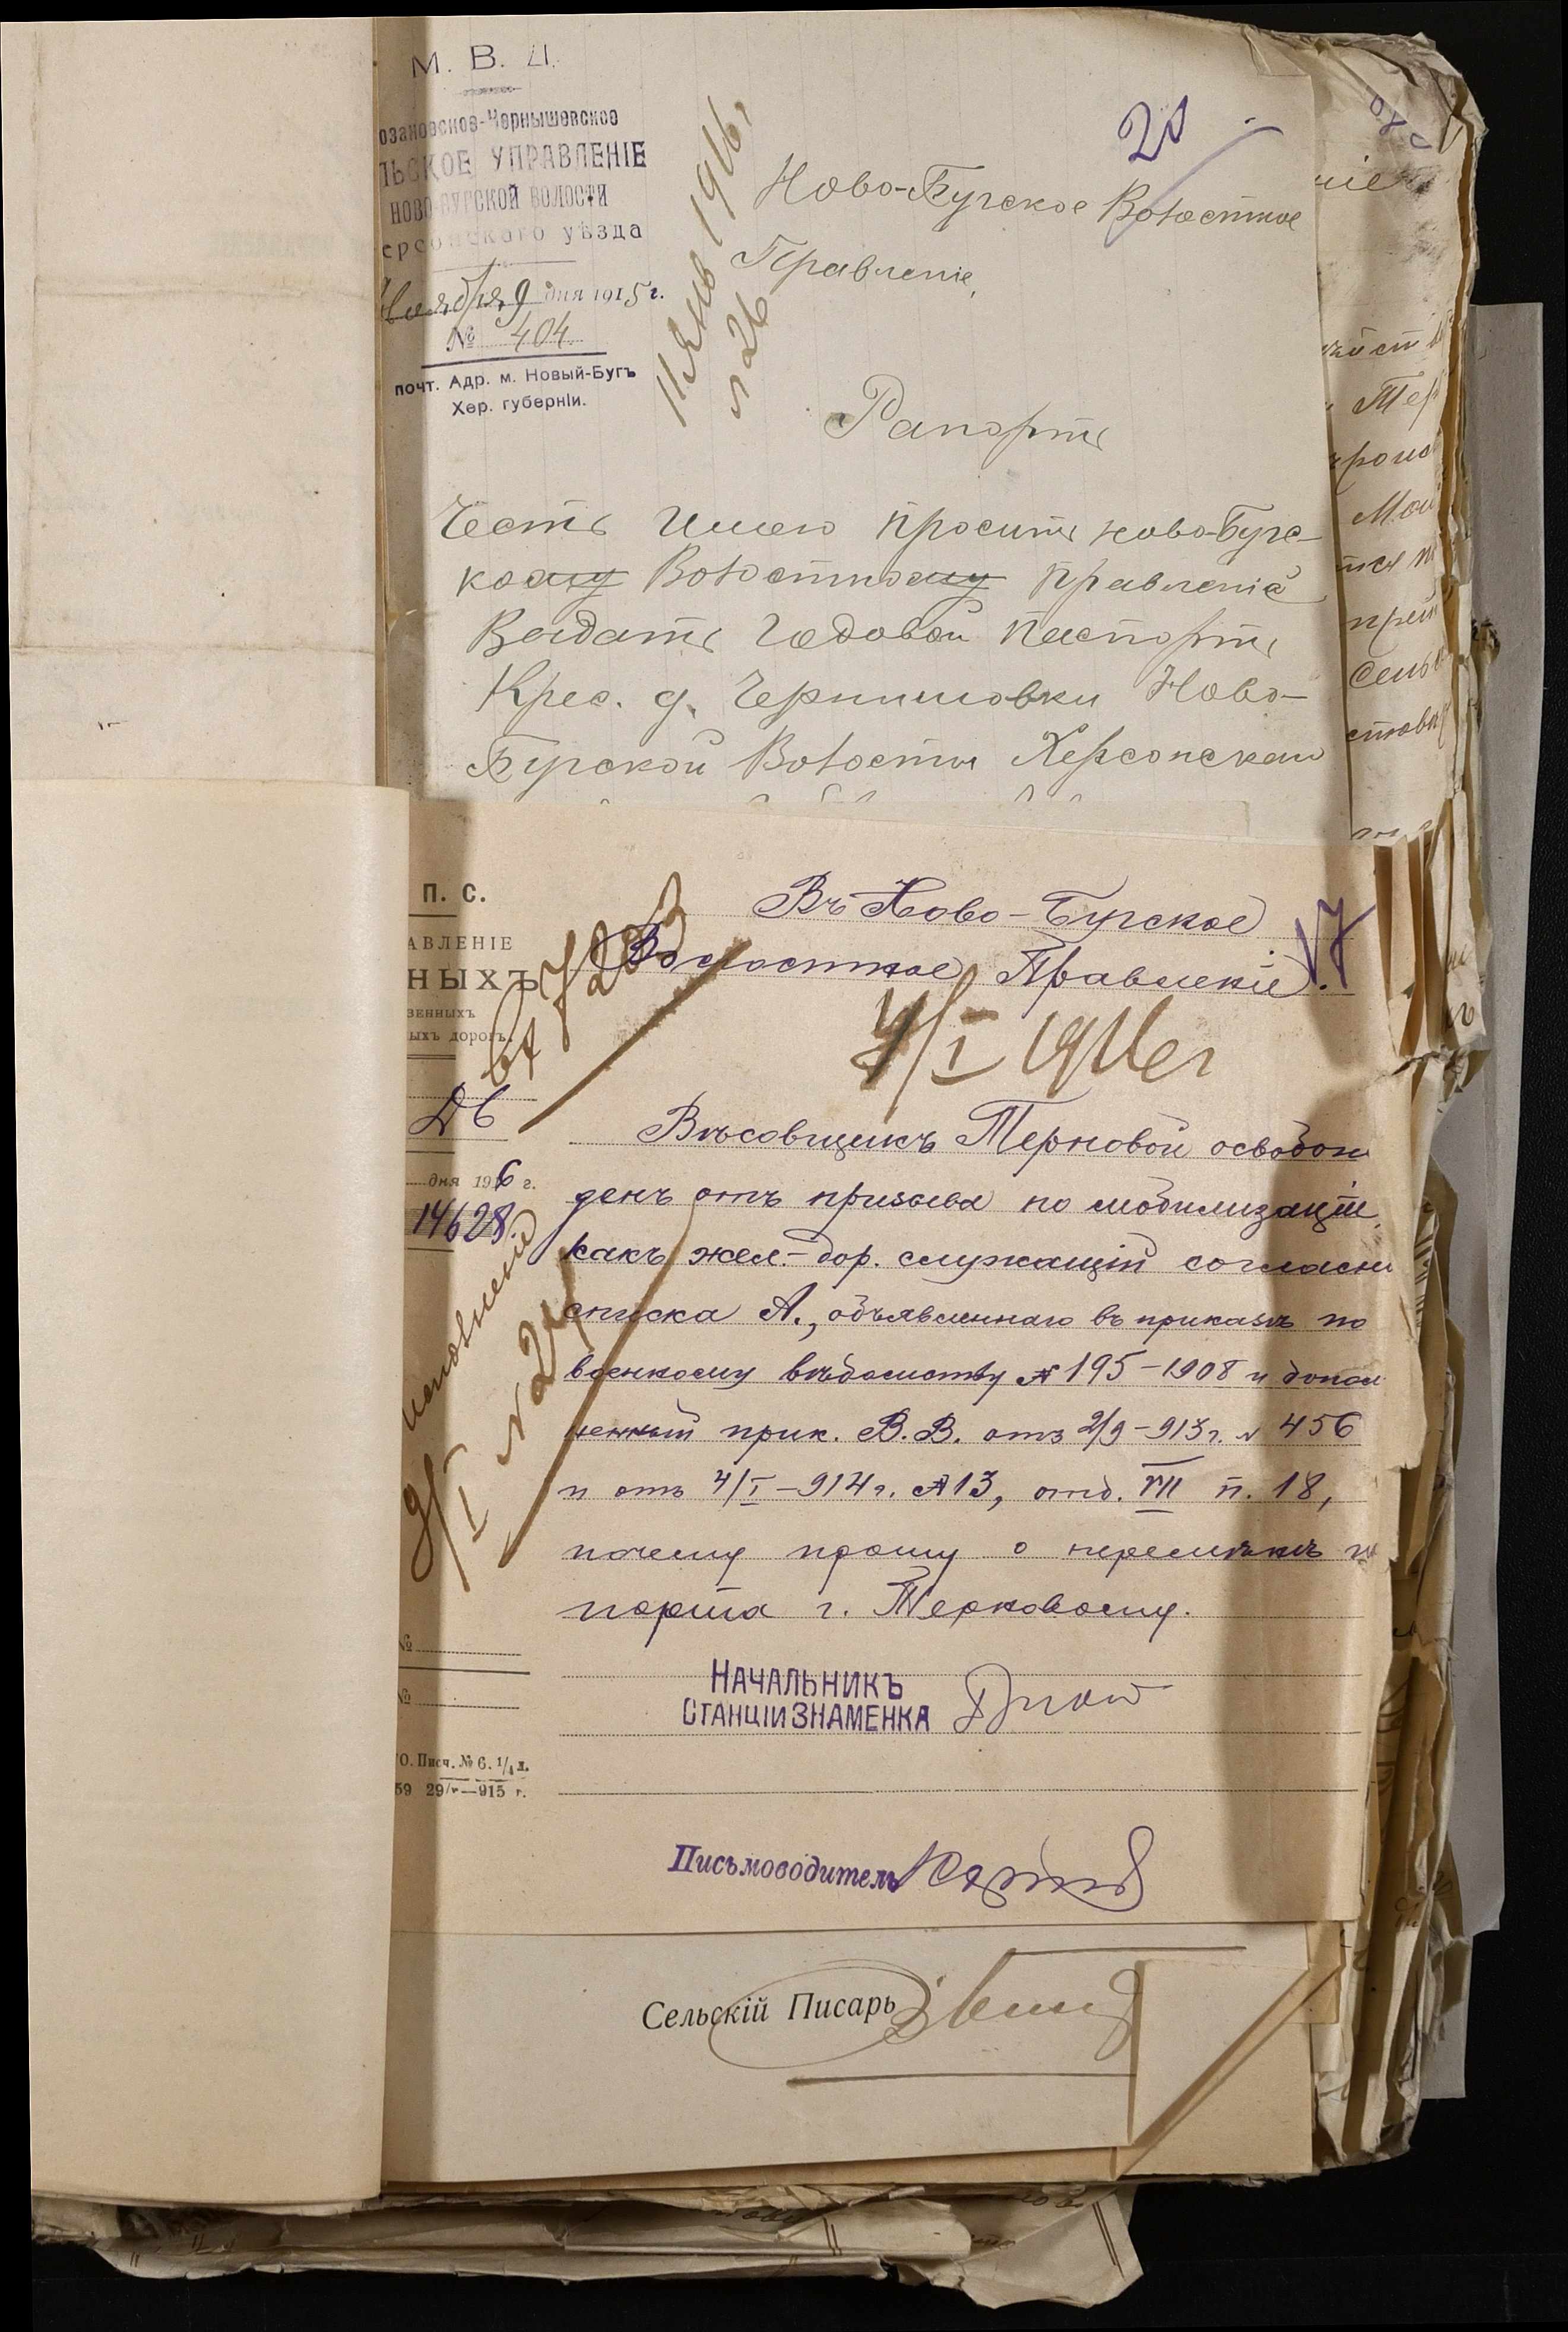 М. В. Д.
озановское-Чернышевское
ЛЬСКОЕ УПРАВЛЕНІЕ
НОВО-БУГСКОЙ ВОЛОСТИ
ерсонскаго уѣзда
9 дня 1915 г.
№ 404.
почт. Адр. м. Новый-Бугъ
Хер. губерніи.
11 Янв 1916,
№ 26
21
Ново-Бугское Волостное
Правленіе,
Рапортъ
Честь Имею просить ново-Бугс-
кому Волостному правленія
Выдать Годовой паспортъ
Крес. д. Чернишовки Ново-
Бугской Волости Херсонскаго
П. С.
АВЛЕНІЕ
НЫХЪ
ВЕННЫХЪ
ыхъ дорогъ.
17
Въ Ново-Бугское
Волостное Правленіе.
4/I 1916 г
дня 1916 г.
14628.
Вѣсовщикъ Терновой освобож
денъ отъ призыва по мобилизаціи,
какъ жел.-дор. служащій согласно
списка А., объявленнаго въ приказѣ по
военному вѣдомству № 195-1908 и допол
ненный прик. В. В. отъ 2/9-913 г. № 456
и отъ 4/I-914 г. № 13, отд. VII п. 18,
почему прошу о пасс
порта г. Терновому.
9/I № 24
№
№
НАЧАЛЬНИКЪ
СТАНЦІИ ЗНАМЕНКА
О. Писч. № 6. 1/4 л.
59 29/V—915 г.
Письмоводитель
Сельскій Писарь